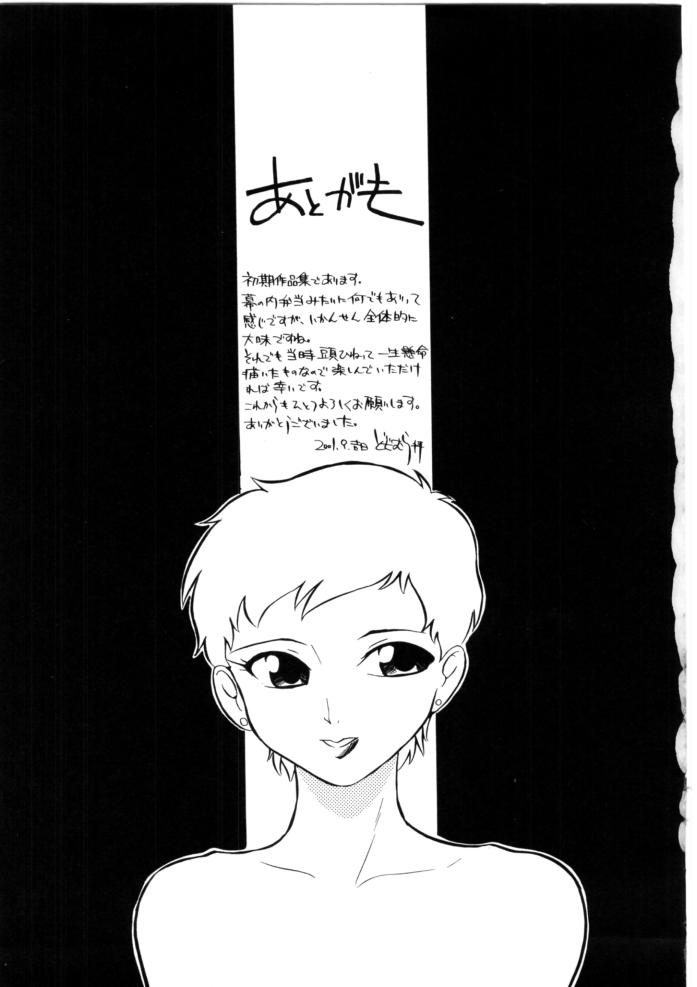 あとがき
初期作品集であります。
幕の内弁当みたいに何でもありって
感じですが、いかんせん全体的に
大味ですね。
それでも当時頭ひねって一生懸命
描いたものなので楽しんでいただけ
れば幸いです。
これからもひとつよろしくお願いします。
ありがとうございました。
2001.9.吉日 どじむら 拝